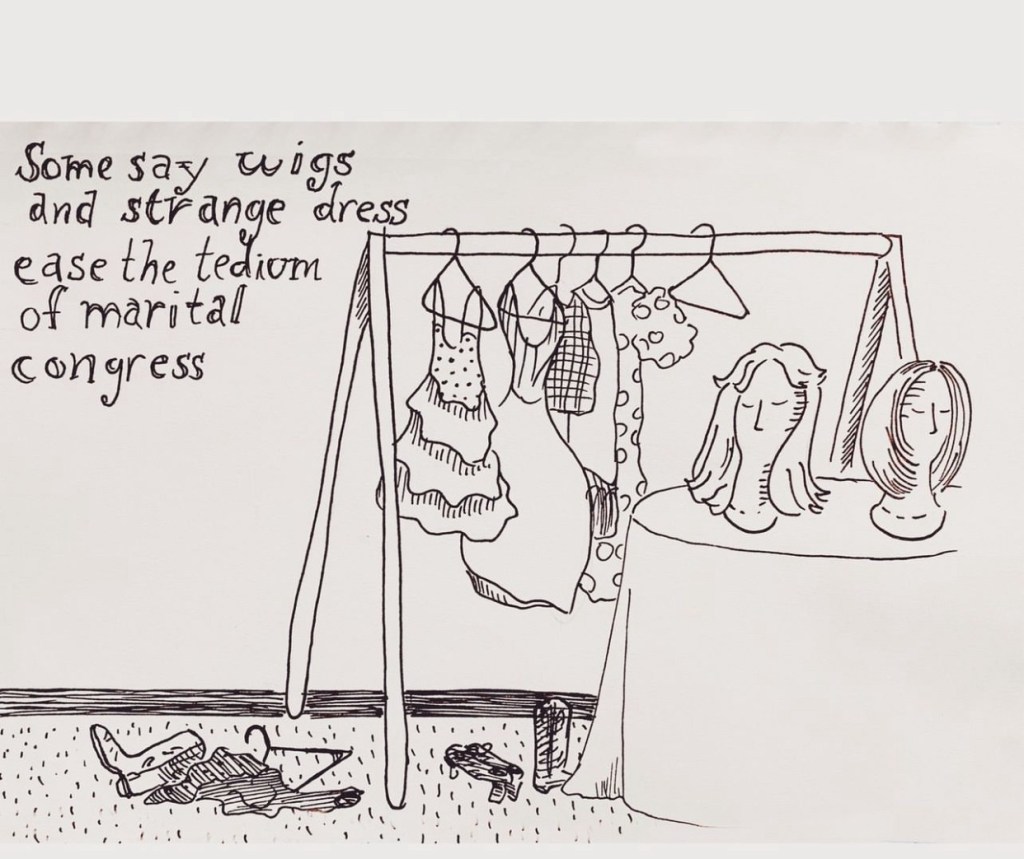 Some say wigs
and strange dress
ease the tedium
of marital
congress